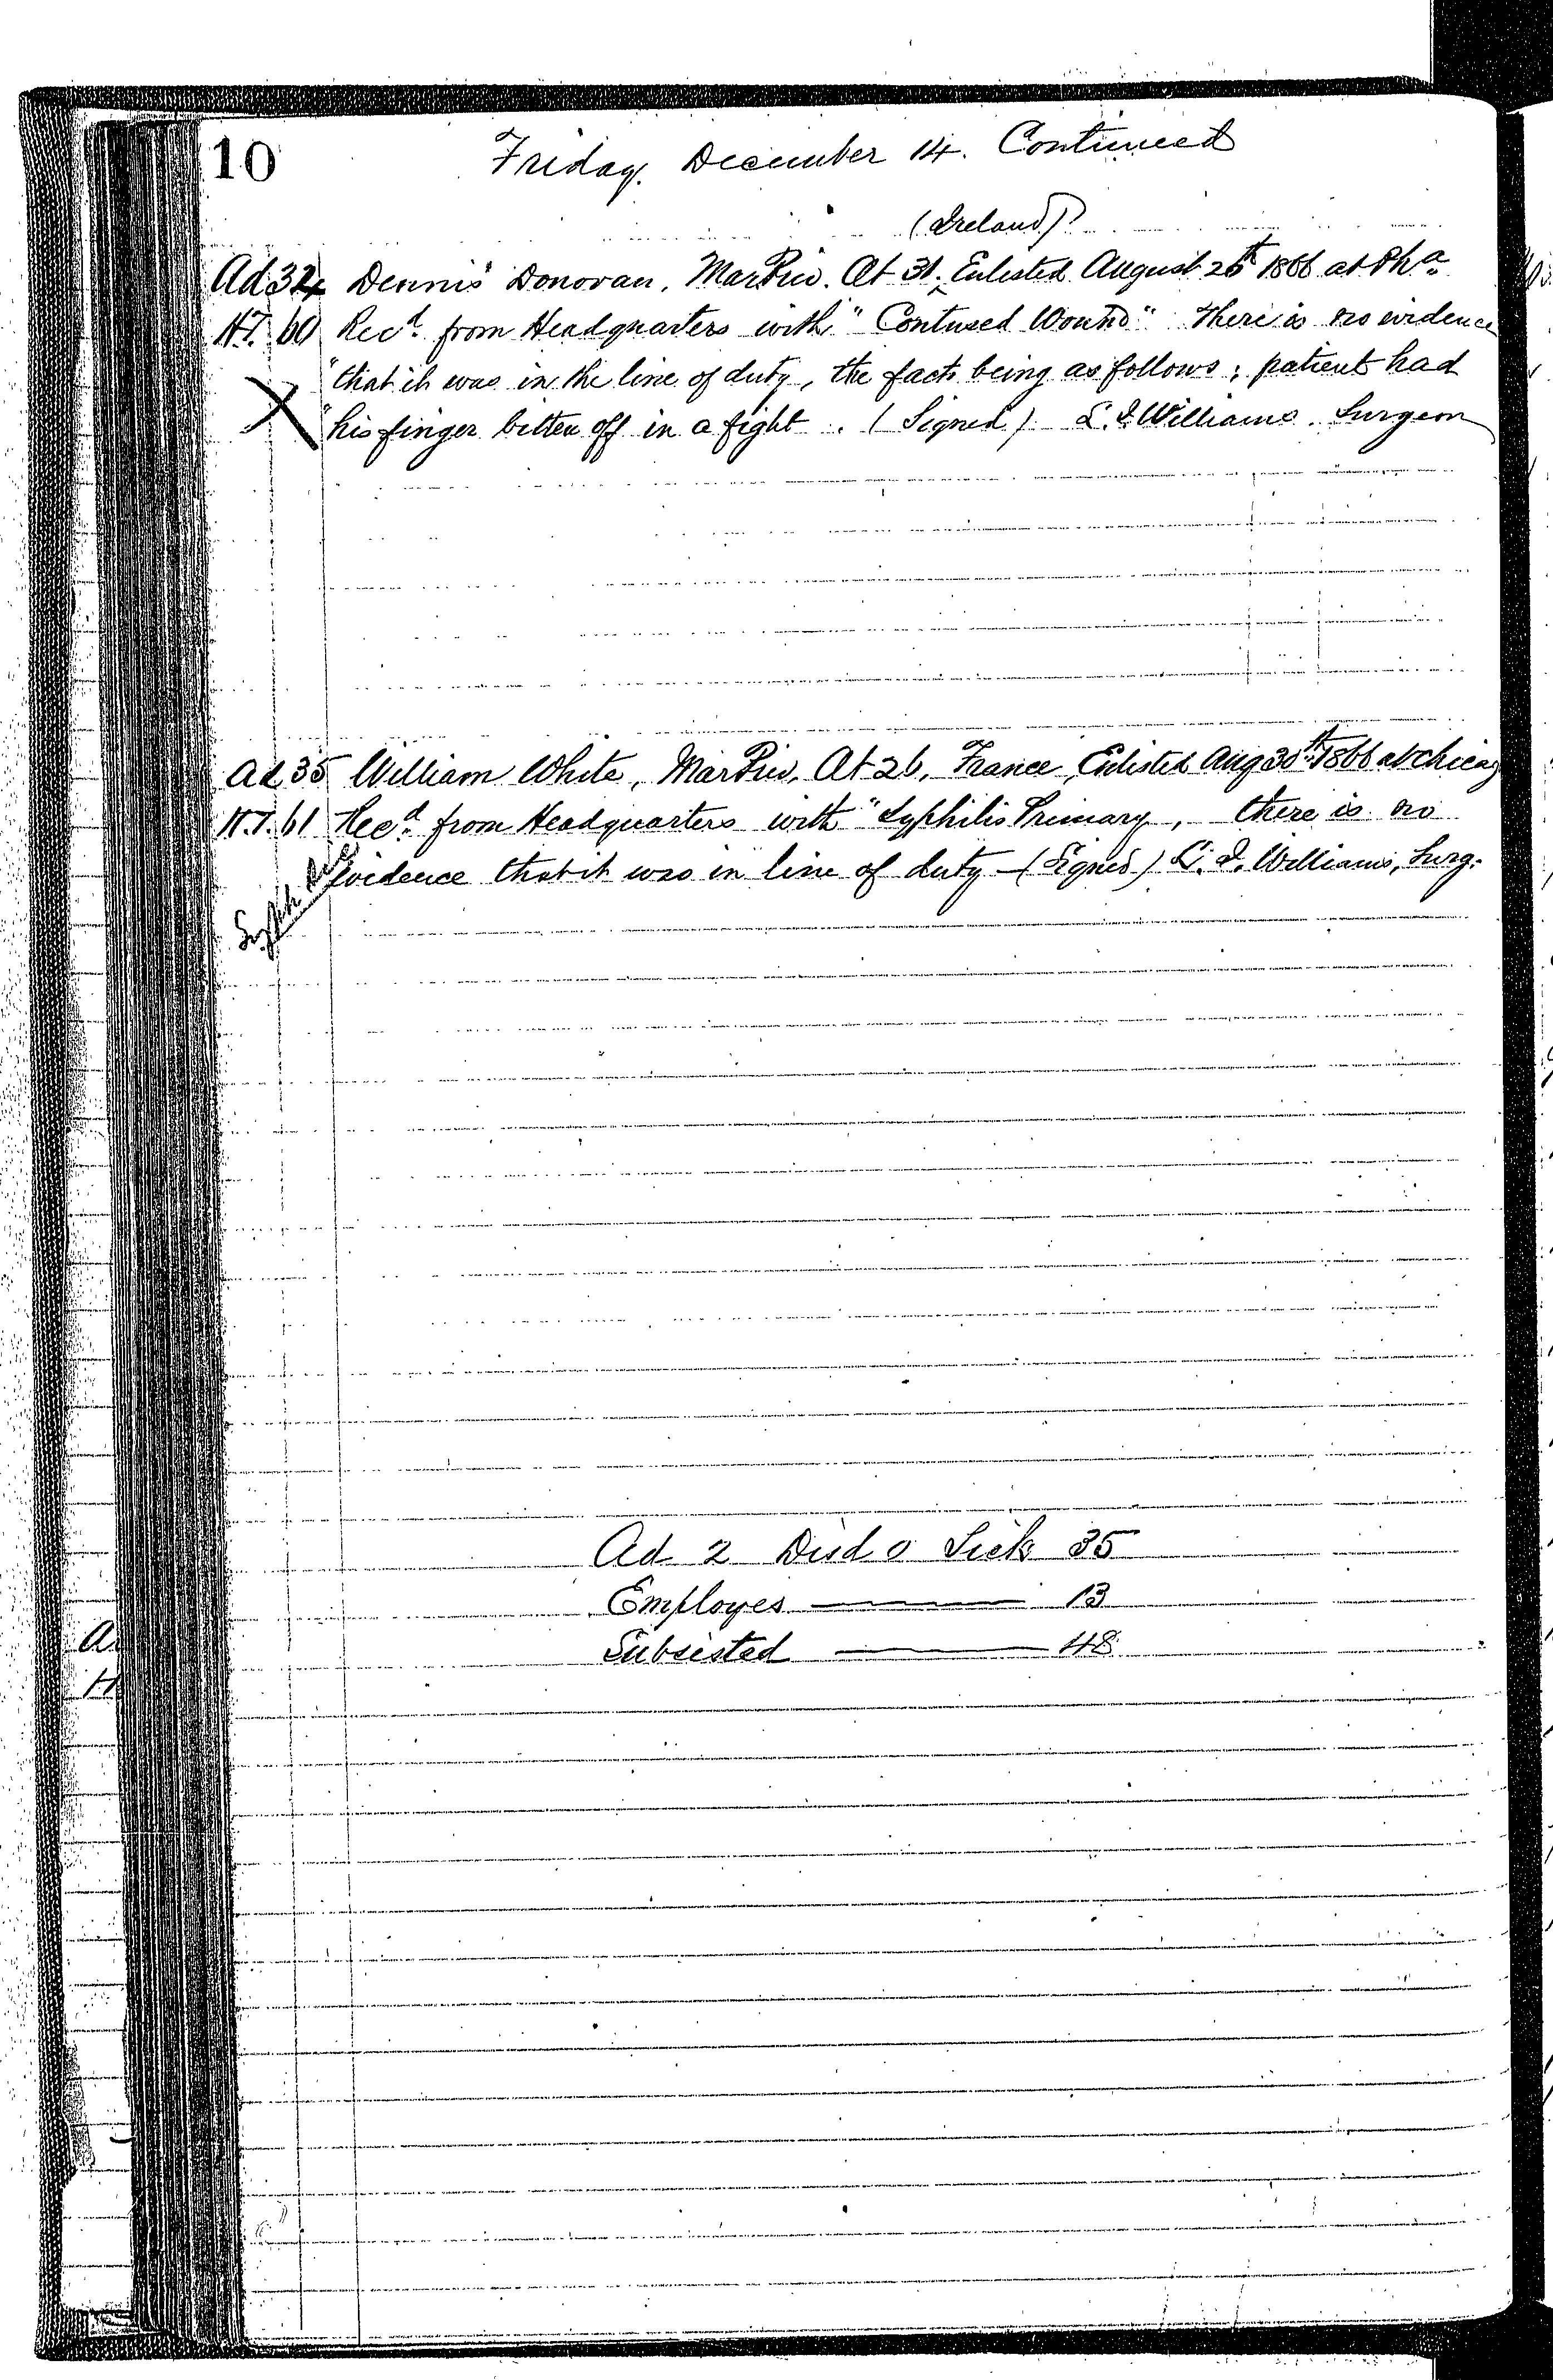 10
Friday. December 14. Continued
(Ireland)?
Ad 34 Dennis Donovan, Mar Priv. At 31. Enlisted August 25th 1866 at Pha
H.T. 60 Recd. from Headquarters with "Contused Wound" There is no evidence
"that it was in the line of duty, the facts being as follows; patient had
X "his finger bitten off in a fight. (Signed) L. J. Williams. Surgeon
Ad 35 William White, Mar Priv, At 26, France, Enlisted Aug 30th 1866 at Chicag
H.T. 61 Recd. from Headquarters with "Syphilis Primary, there is no
evidence that it was in line of duty - (Signed) L. J. Williams, Surg.
Syph
Ad 2 Disd 0 Sick 35
Employes — 13
Subsisted — 48
A
H